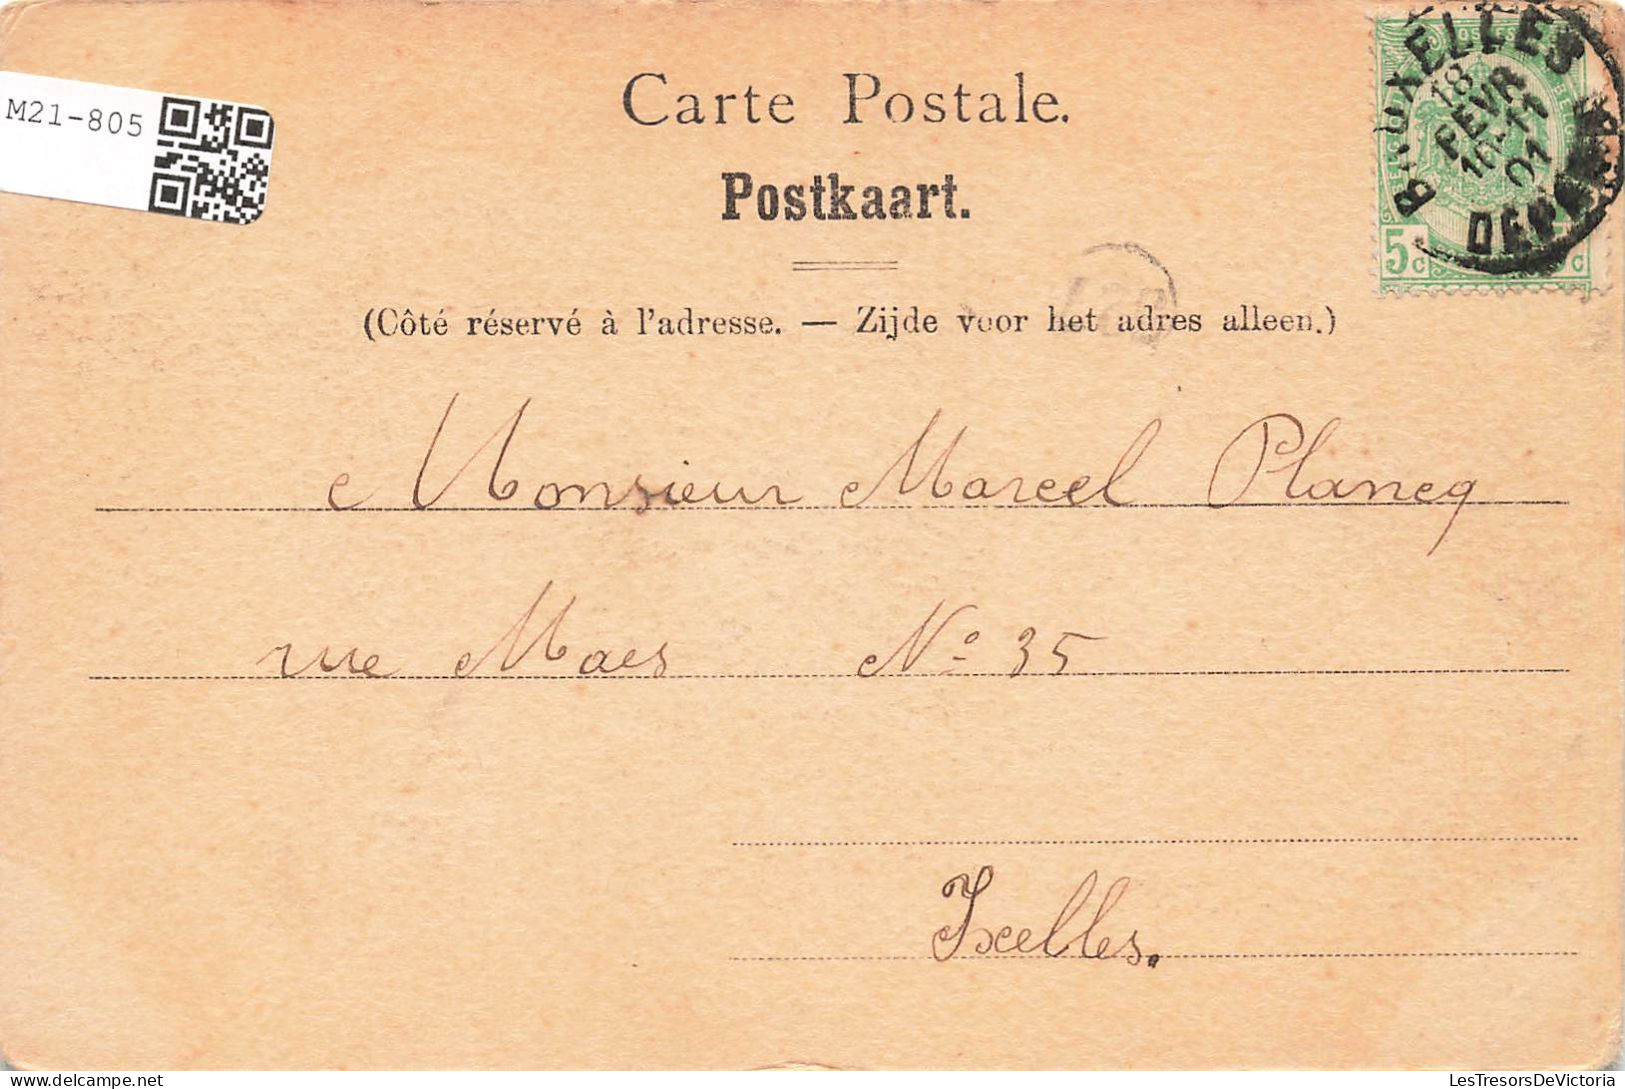 M21-805
Carte Postale.
Postkaart.
(Côté réservé à l'adresse. — Zijde voor het adres alleen.)
BRUXELLES
18
FEVR
10-11
01
DEPART
5c
Monsieur Marcel Plancq
rue Maes Nº 35
Ixelles.
LesTresorsDeVictoria